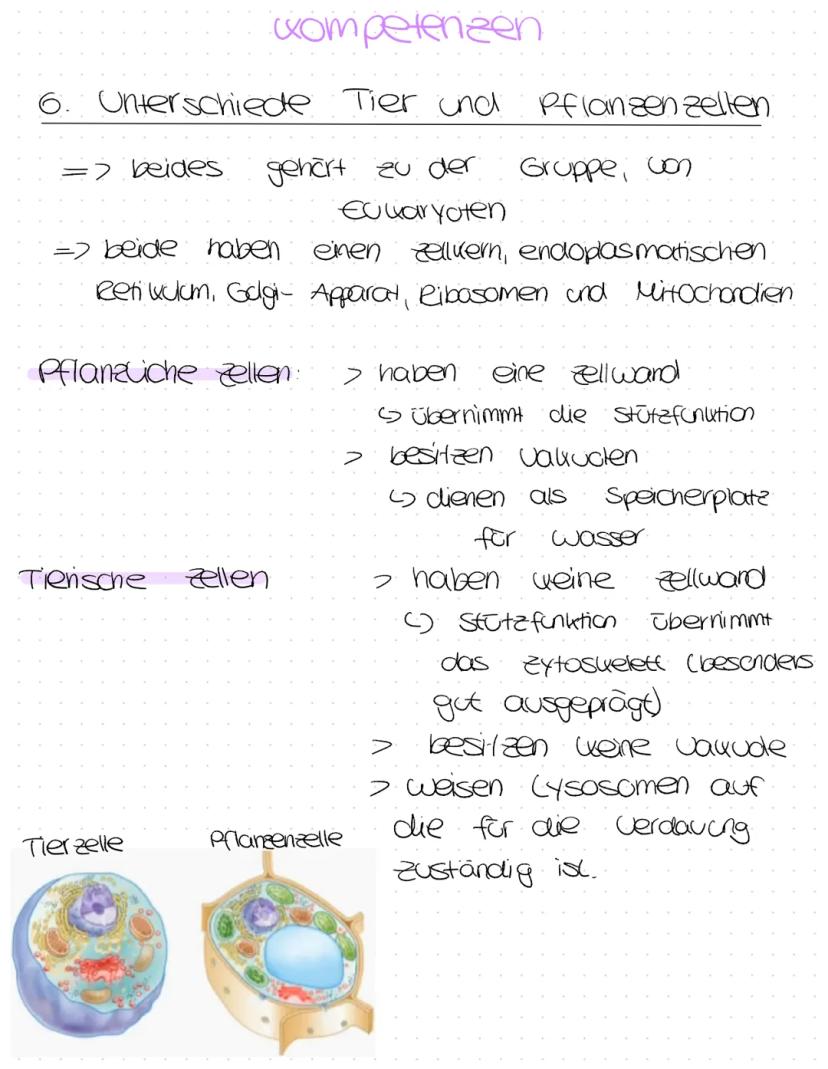 Kompetenzen
6. Unterschiede Tier und Pflanzenzellen
=> beides gehört zu der Gruppe, von
Eukaryoten
=> beide haben einen Zellkern, endoplasmatischen
Retikulum, Golgi- Apparat, Ribosomen und Mitochondien
Pflanzliche Zellen: > haben eine Zellwand
↳ übernimmt die Stützfunktion
> besitzen Vakuolen
↳ dienen als Speicherplatz
für Wasser
Tierische Zellen > haben keine Zellwand
↳ Stützfunktion übernimmt
das Zytoskelett (besonders
gut ausgeprägt)
> besitzen keine Vakuole
> weisen Lysosomen auf
die für die Verdauung
zuständig ist.
Tierzelle Pflanzenzelle